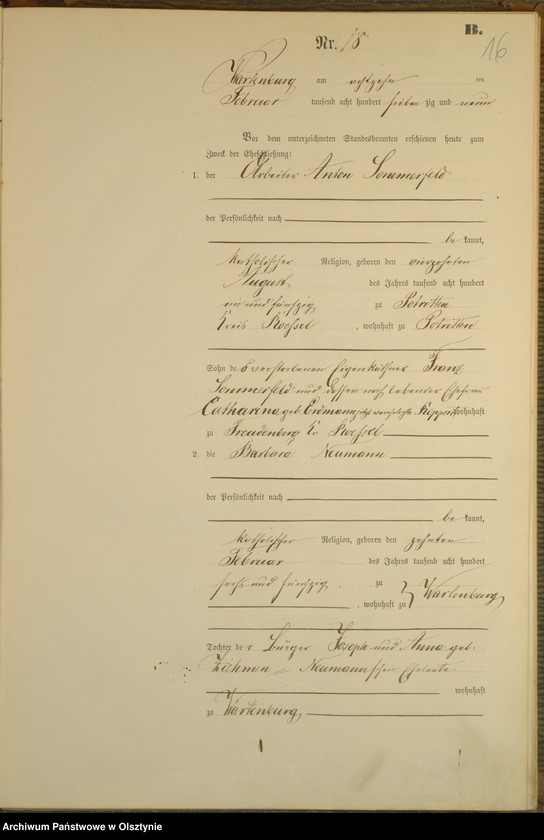 B.
16
Nr. 18
Wartenburg am achtzehn ten
Februar tausend acht hundert sieben zig und neun
Vor dem unterzeichneten Standesbeamten erschienen heute zum
Zweck der Eheschließung:
1. der Arbeiter Anton Sommerfeld
der Persönlichkeit nach
be kannt,
katholischer Religion, geboren den vierzehnten
August des Jahres tausend acht hundert
ein und fünfzig zu Potritten
Kreis Roessel, wohnhaft zu Potritten
Sohn des verstorbenen Eigenkäthner Franz
Sommerfeld und dessen noch lebender Ehefrau
Catharina geb. Erdmann jetzt verehelichte wohnhaft
zu Freudenberg Kr. Roessel
2. die Barbara Neumann
der Persönlichkeit nach
be kannt,
katholischer Religion, geboren den zehnten
Februar des Jahres tausend acht hundert
sechs und fünfzig zu
Wartenburg
, wohnhaft zu
Tochter der Bürger Joseph und Anna geb.
Neumannschen Eheleute
wohnhaft
zu Wartenburg
Archiwum Państwowe w Olsztynie